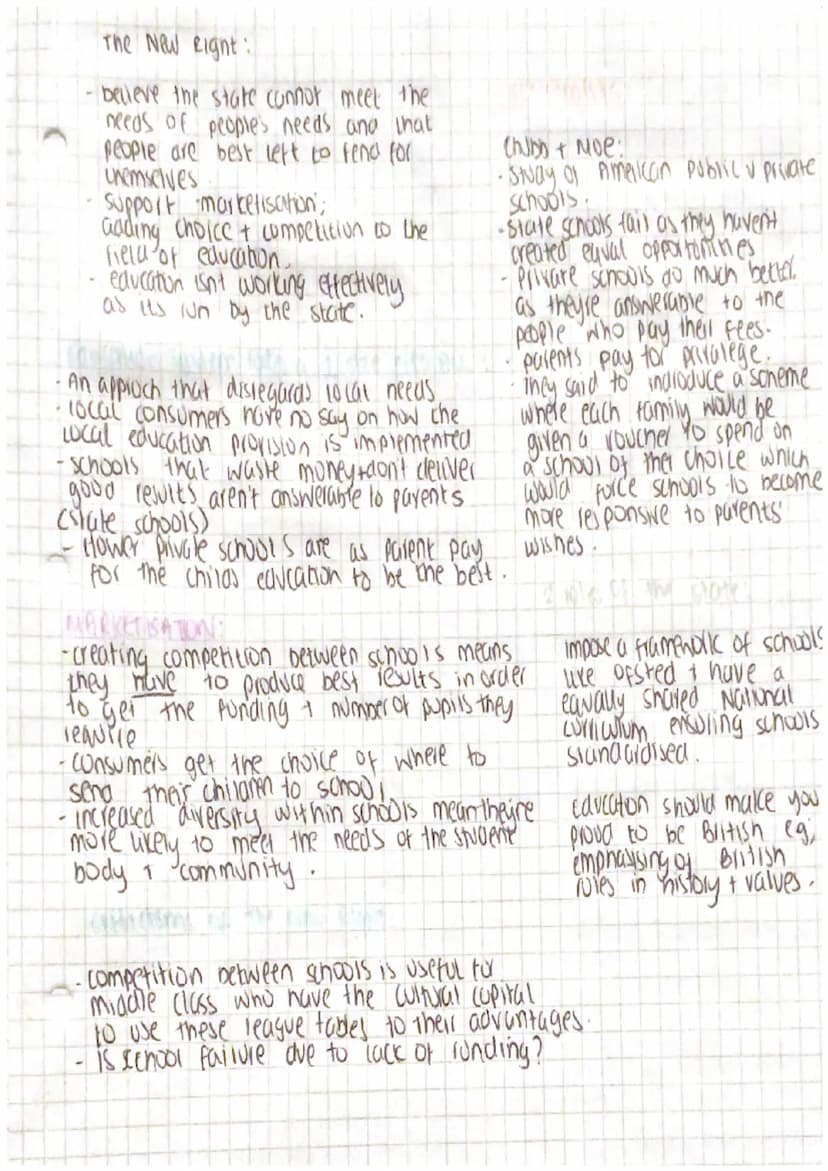 The New Right:
- believe the state cannot meet the
needs of people's needs and that
people are best left to fend for
themselves
- support 'marketisation';
adding choice + competition to the
field of education.
- education isn't working effectively
as its run by the state.
- An approch that disregards local needs
- local consumers have no say on how the
local education provision is implemented
- schools that waste money + don't deliver
good results aren't answerable to parents
(state schools)
- Hower private schools are as parent pay
for the childs education to be the best.
MARKETISATION:
- creating competition between schools means
they have to produce best results in order
to get the funding + number of pupils they
require
- consumers get the choice of where to
send their children to school
- increased diversity within schools mean they're
more likely to meet the needs of the student
body + community.
- competition between schools is useful for
middle class who have the cultural capital
to use these league tables to their advantages.
- is school failure due to lack of funding?
Chubb + Moe:
- Study of American public v private
schools.
- state schools fail as they haven't
created equal opportunities
- Private schools do much better
as they're answerable to the
people who pay their fees.
- parents pay for privalege.
- They said to indroduce a scheme
where each family would be
given a voucher to spend on
a school of their choice which
would force schools to become
more responsive to parents'
wishes.
impose a framework of schools
like ofsted + have a
equally shared National
curriculum, ensuring schools
standardised.
Education should make you
proud to be British eg,
emphasising of British
roles in history + values.